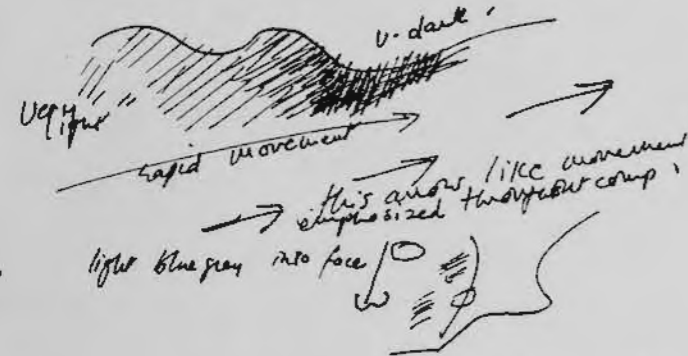 v. dark.
Very
light
rapid movement
this arrow like movement
emphasized throughout comp.
light blue grey into face